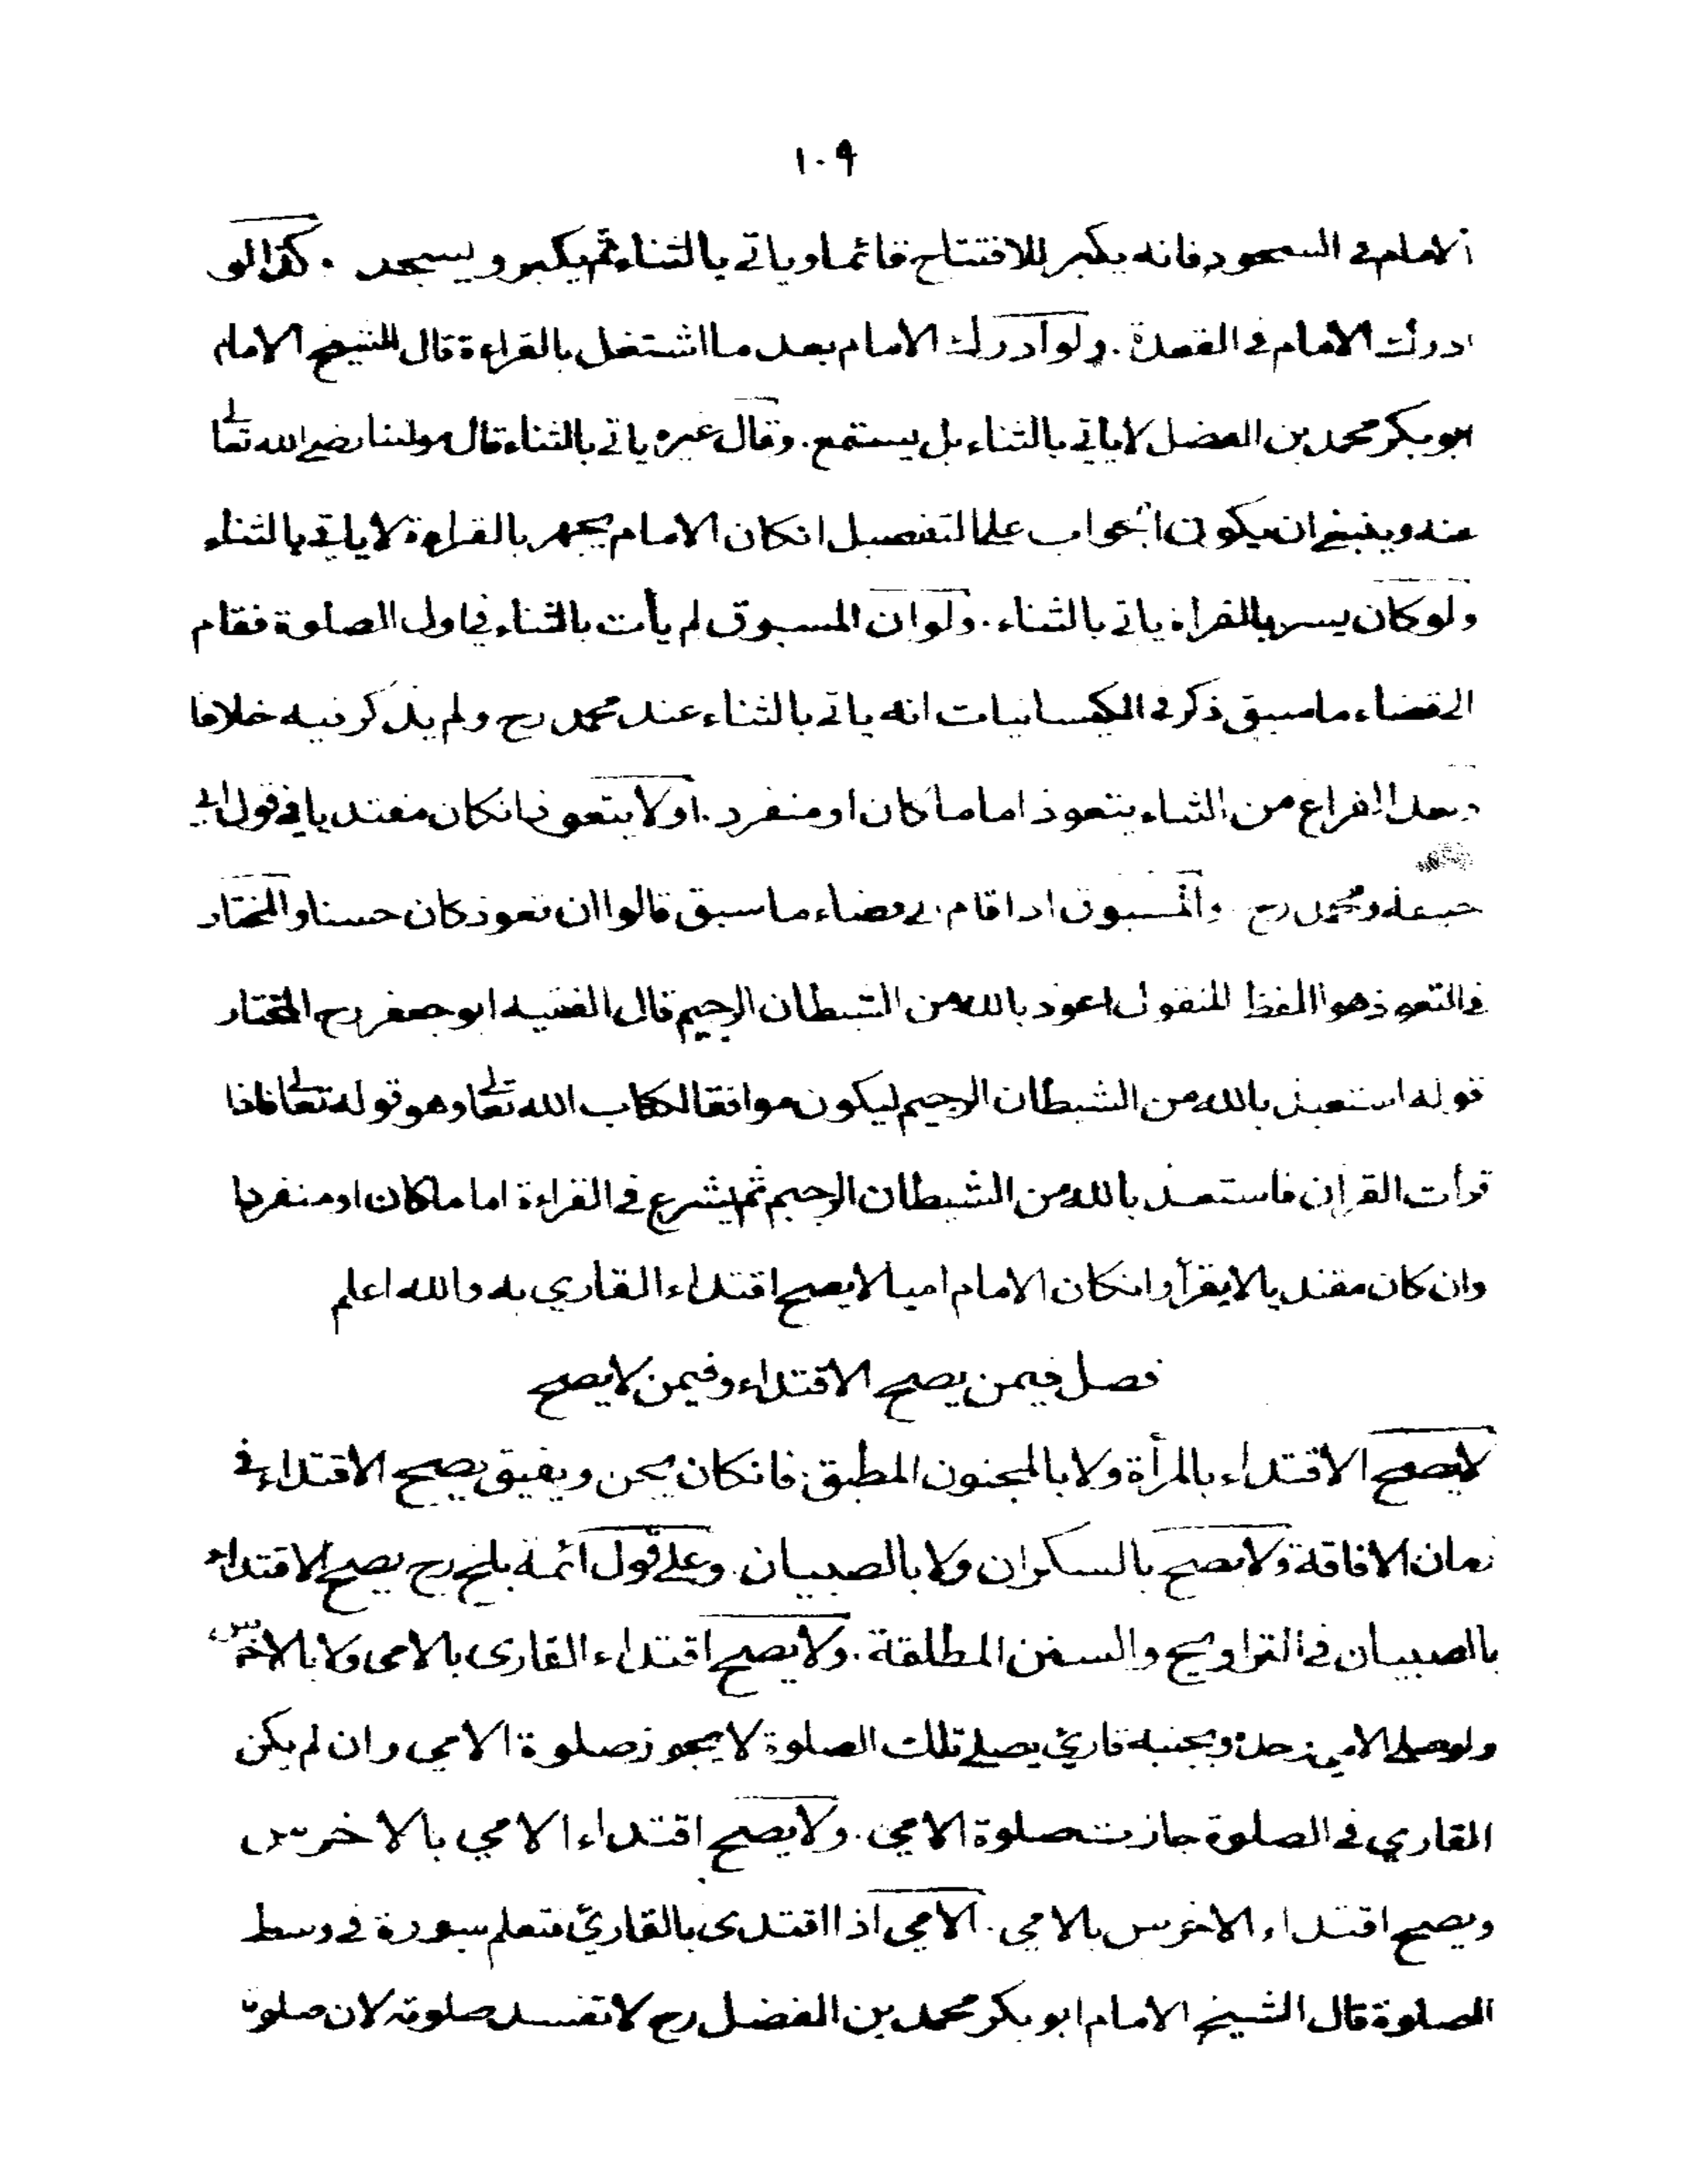 ١٠٩
الامام في السجود فانه يكبر للافتتاح قائما و ياتي بالثناء ثم يكبر و يسجد . كذا لو
ادرك الامام في القعدة . ولو ادرك الامام بعد ما اشتغل بالقراءة قال الشيخ الامام
ابو بكر محمد بن الفضل لا ياتي بالثناء بل يستمع . وقال غيره ياتي بالثناء قال مولينا رضي الله تعالى
عنه وينبغي ان يكون الجواب على التفصيل انكان الامام يجهر بالقراءة لا ياتي بالثناء
ولو كان يسر بالقراءة ياتي بالثناء . ولو ان المسبوق لم يأت بالثناء في اول الصلوة فقام
الى قضاء ما سبق ذكر في الكيسانيات انه ياتي بالثناء عند محمد رح ولم يذكر فيه خلافا
وبعد الفراغ من الثناء يتعوذ اماما كان او منفرد . او لا يتعوذ انكان مقتديا في قول ابي
حنيفة ومحمد رح والمسبوق اذا قام الى قضاء ما سبق قالوا ان تعوذ كان حسنا والمختار
في التعوذ هو اللفظ المنقول اعوذ بالله من الشيطان الرجيم قال الفقيه ابو جعفر رح المختار
قوله استعيذ بالله من الشيطان الرجيم ليكون موافقا لكتاب الله تعالى وهو قوله تعالى فاذا
قرأت القران فاستعذ بالله من الشيطان الرجيم ثم يشرع في القراءة اماما كان او منفردا
وان كان مقتديا لا يقرأ وانكان الامام اميا لا يصح اقتداء القاري به والله اعلم
فصل فيمن يصح الاقتداء وفيمن لا يصح
لا يصح الاقتداء بالمرأة ولا بالمجنون المطبق فانكان يجن و يفيق يصح الاقتداء في
زمان الافاقة ولا يصح بالسكران ولا بالصبيان . وعلى قول ائمة بلخ رح يصح الاقتداء
بالصبيان في التراويح والسنن المطلقة . ولا يصح اقتداء القارى بالامى ولا بالاخرس
ولو صلى الامي وحده وبجنبه قارئ يصلي تلك الصلوة لا يجوز صلوة الامي وان لم يكن
القاري في الصلوة جازت صلوة الامي . ولا يصح اقتداء الامي بالاخرس
ويصح اقتداء الاخرس بالامي . الامي اذا اقتدى بالقارئ فتعلم سورة في وسط
الصلوة قال الشيخ الامام ابو بكر محمد بن الفضل رح لا تفسد صلوته لان صلوته